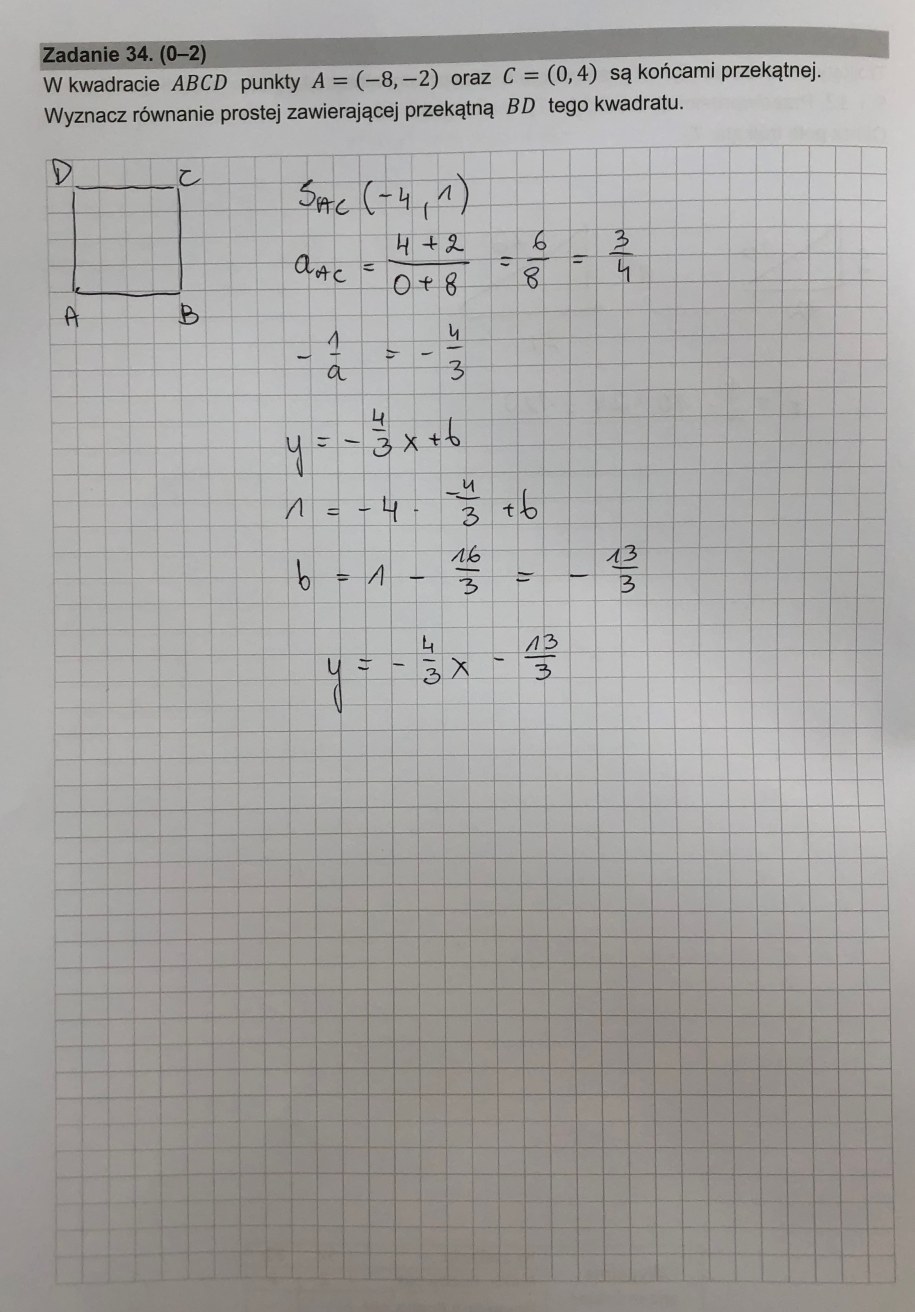 Zadanie 34. (0–2)
W kwadracie ABCD punkty A = (−8, −2) oraz C = (0, 4) są końcami przekątnej.
Wyznacz równanie prostej zawierającej przekątną BD tego kwadratu.
D C
A B
S_AC (-4, 1)
a_AC = (4 + 2)/(0 + 8) = 6/8 = 3/4
- 1/a = - 4/3
y = - 4/3 x + b
1 = - 4 · -4/3 + b
b = 1 - 16/3 = - 13/3
y = - 4/3 x - 13/3